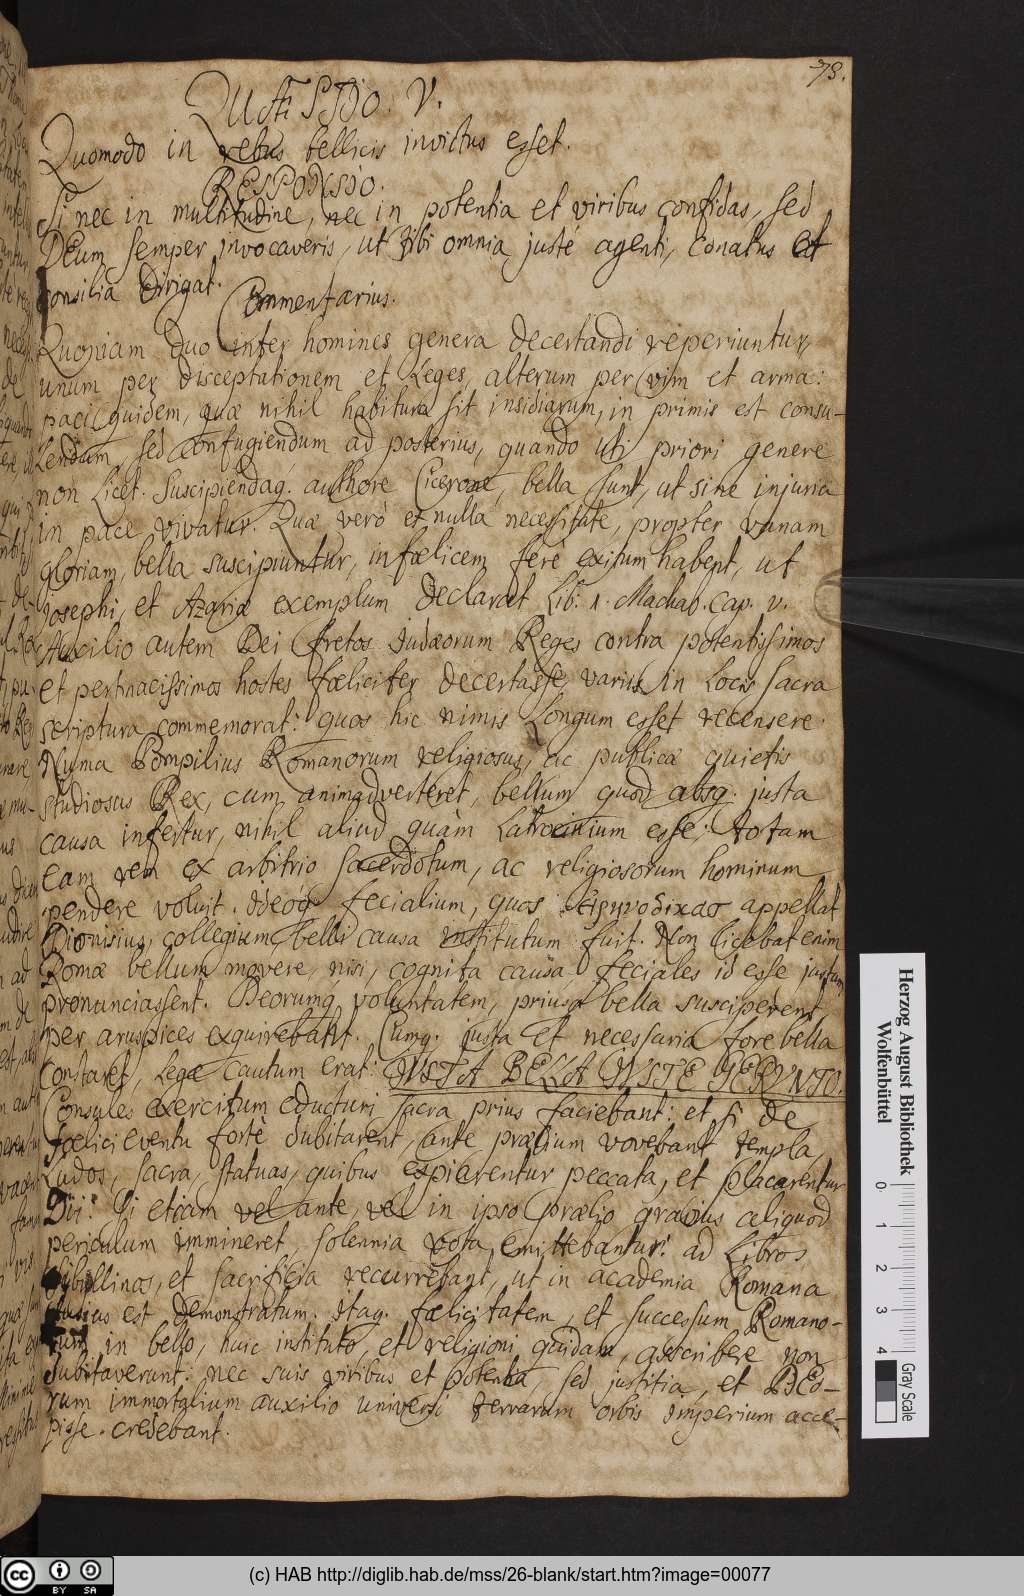 73.
QUÆSTIO. V.
Quomodo in rebus bellicis invictus esset.
RESPONSIO.
Si nec in multitudine, nec in potentia et viribus confidas, sed
DEum semper invocaveris, ut tibi omnia justé agenti, conatus et
consilia dirigat.
Commentarius.
Quoniam duo inter homines genera decertandi reperiuntur,
unum per disceptationem et Leges, alterum per vim et arma:
paci quidem, quæ nihil habitura sit insidiarum, in primis est consu-
Lendum, sed confugiendum ad posterius, quando uti priori genere
non Licet. Suscipiendaq. authore Cicerone, bella sunt, ut sine injuria
in pace vivatur. Quæ verò et nulla necessitate, propter vanam
gloriam, bella suscipiuntur, infœlicem fere exitum habent, ut
Josephi, et Azariæ exemplum declarat Lib. 1. Machab. Cap. v.
Auxilio autem Dei fretos Judæorum Reges contra potentissimos
et pertinacissimos hostes fœliciter decertasse, varius in Locis sacra
scriptura commemorat: quos hic nimis Longum esset recensere.
Numa Pompilius Romanorum religiosus, ac publicæ quietis
studiosus Rex, cum animadverteret, bellum quod absq. justa
causa infertur, nihil aliud quàm Latrocinium esse; totam
eam rem ex arbitrio sacerdotum, ac religiosorum hominum
pendere voluit. Ideóq fecialium, quos εἰρηνοδίκας appellat
Dionisius, collegium belli causa institutum fuit. Non licebat enim
Romæ bellum movere, nisi, cognita causa, feciales id esse justum
pronunciassent. Deorumq voluntatem, priusq bella susciperent,
per aruspices exquirebant. Cumq. justa et necessaria fore bella
Constaret, Lege cautum erat: JVSTA BELLA JVSTE GERVNTO.
Consules exercitum educturi sacra prius faciebant: et si de
fœlici eventu fortè dubitarent, ante prælium vovebant templa,
Ludos, sacra, statuas, quibus expiarentur peccata, et placarentur
Dii: Si etiam vel ante, vel in ipso prælio gravius aliquod
periculum immineret, solennia vota emittebantur: ad Libros
Sibyllinos, et sacrificia recurrebant, ut in academia Romana
est demonstratum. Itaq. fœlicitatem, et successum Romano-
rum in bello, huic instituto, et religioni quidam, adscribere non
dubitaverunt: nec suis viribus et potentia, sed justitia, et DEo-
rum immortalium auxilio universi terrarum orbis Imperium acce-
pisse credebant.
Herzog August Bibliothek
Wolfenbüttel
0 1 2 3 4
Gray Scale
(c) HAB http://diglib.hab.de/mss/26-blank/start.htm?image=00077
cc BY SA